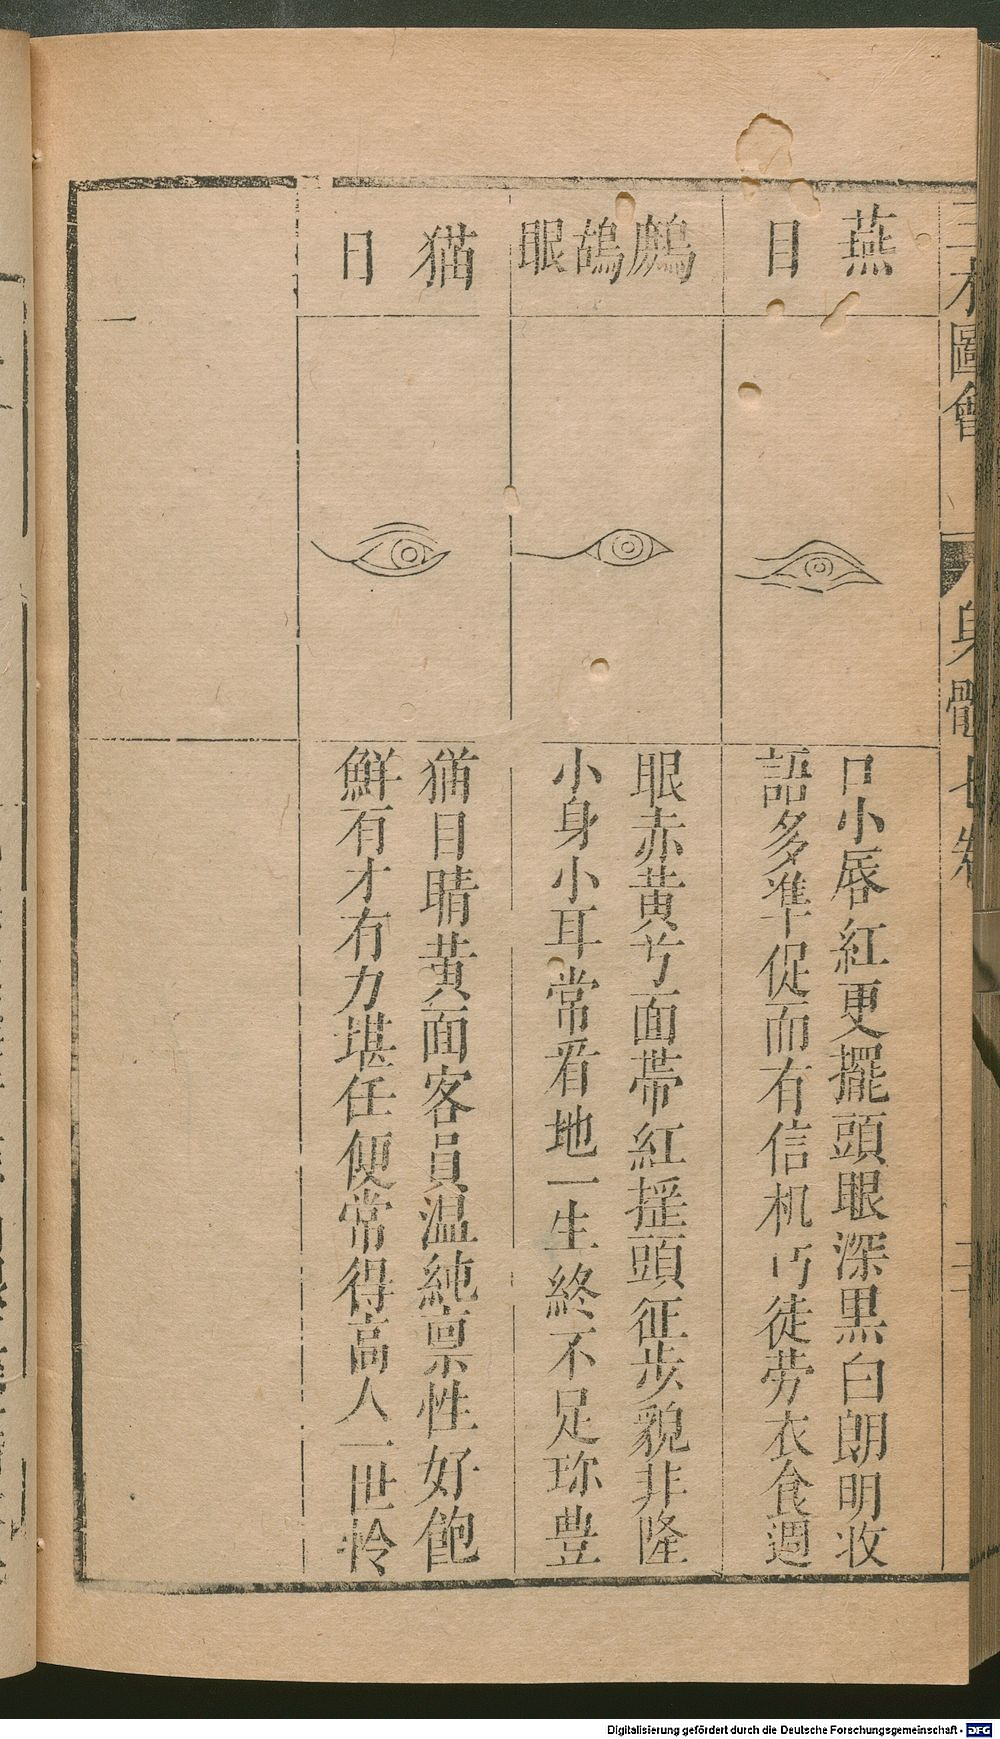 三才圖會
身體七卷
三十
燕
目
口小唇紅更擺頭眼深黒白朗明收
語多準促而有信机巧徒劳衣食週
鷓
鴣
眼
眼赤黄兮面帶紅揺頭征步貌非隆
小身小耳常看地一生終不足珎豊
猫
目
猫目睛黄面客員温純禀性好飽
鮮有才有力堪任便常得高人一世怜
Digitalisierung gefördert durch die Deutsche Forschungsgemeinschaft - DFG